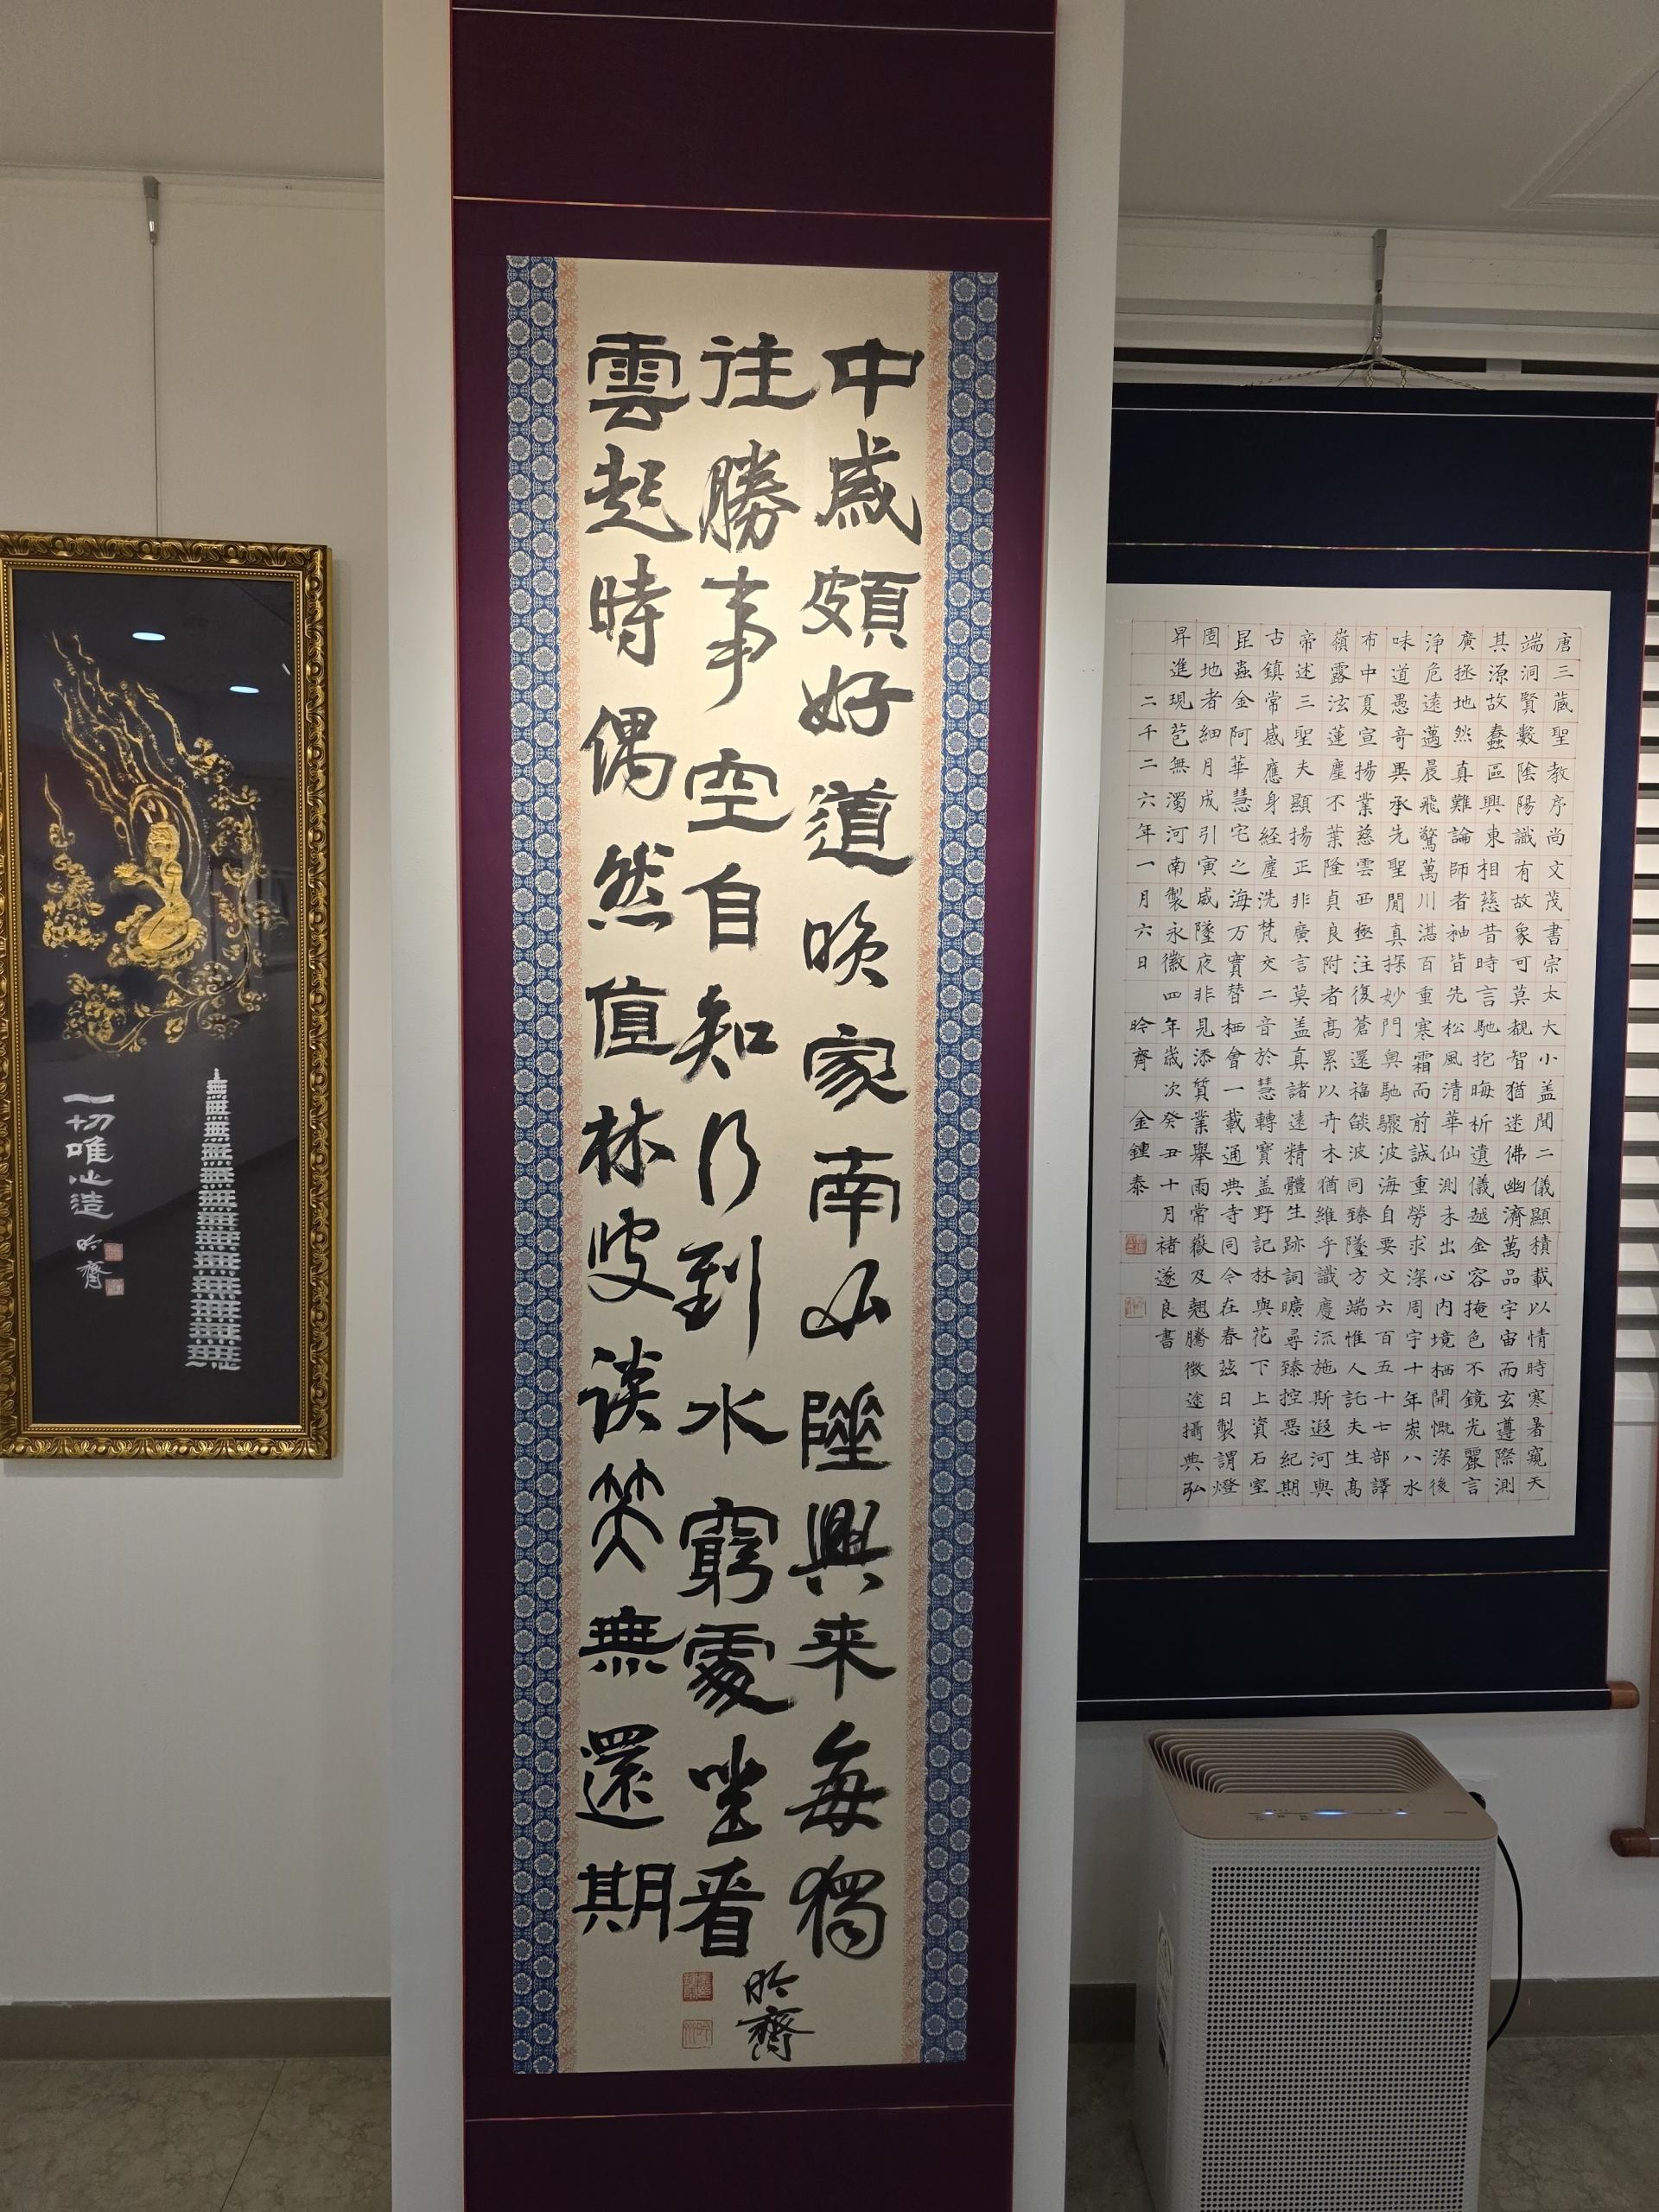 一切唯心造
昑齋
中歲頗好道晚家南山陲興来每獨
往勝事空自知行到水窮處坐看
雲起時偶然值林叟談笑無還期
昑齋
唐三蔵聖教序尚文茂書宗太大小盖聞二儀顯積載以情時寒暑窺天
端洞賢數陰陽識有故象可莫覩智猶迷佛幽濟萬品宇宙而玄遵際測
其源故蠢區興東相慈昔時言馳抱晦析遺儀越金容掩色不鏡光麗言
廣拯地然真難論師者袖皆先松風清華仙測未出心内境栖開慨深後
淨危遠邁晨飛驚萬川湛百重寒霜而前誠重勞求深周宇十年炭八水
味道愚奇異承先聖聞真探妙門奥馳驟波海自要文六百五十七部譯
布中夏宣揚業慈雲西極注復蒼還福燄波同臻墜方端惟人託夫生高
嶺露泫蓮塵不葉隆貞良附者高累以卉木猶維乎識慶流施斯遐河與
帝述三聖夫顯揚正非廣言莫盖真諸遠精體生跡詞曠尋臻控惡紀期
古鎮常感應身経塵洗梵文二音於慧轉寶盖野記林與花下上資石室
昆蟲金阿華慧宅之海万實替栖會一載通典寺同令在春茲日製謂燈
固地者細月成引寅感墜夜非見添質業舉雨常嶽及翹騰徴途攝典弘
昇進現苞無濁河南製永徽四年歲次癸丑十月褚遂良書
二千二六年一月六日 昑齊 金鍾泰